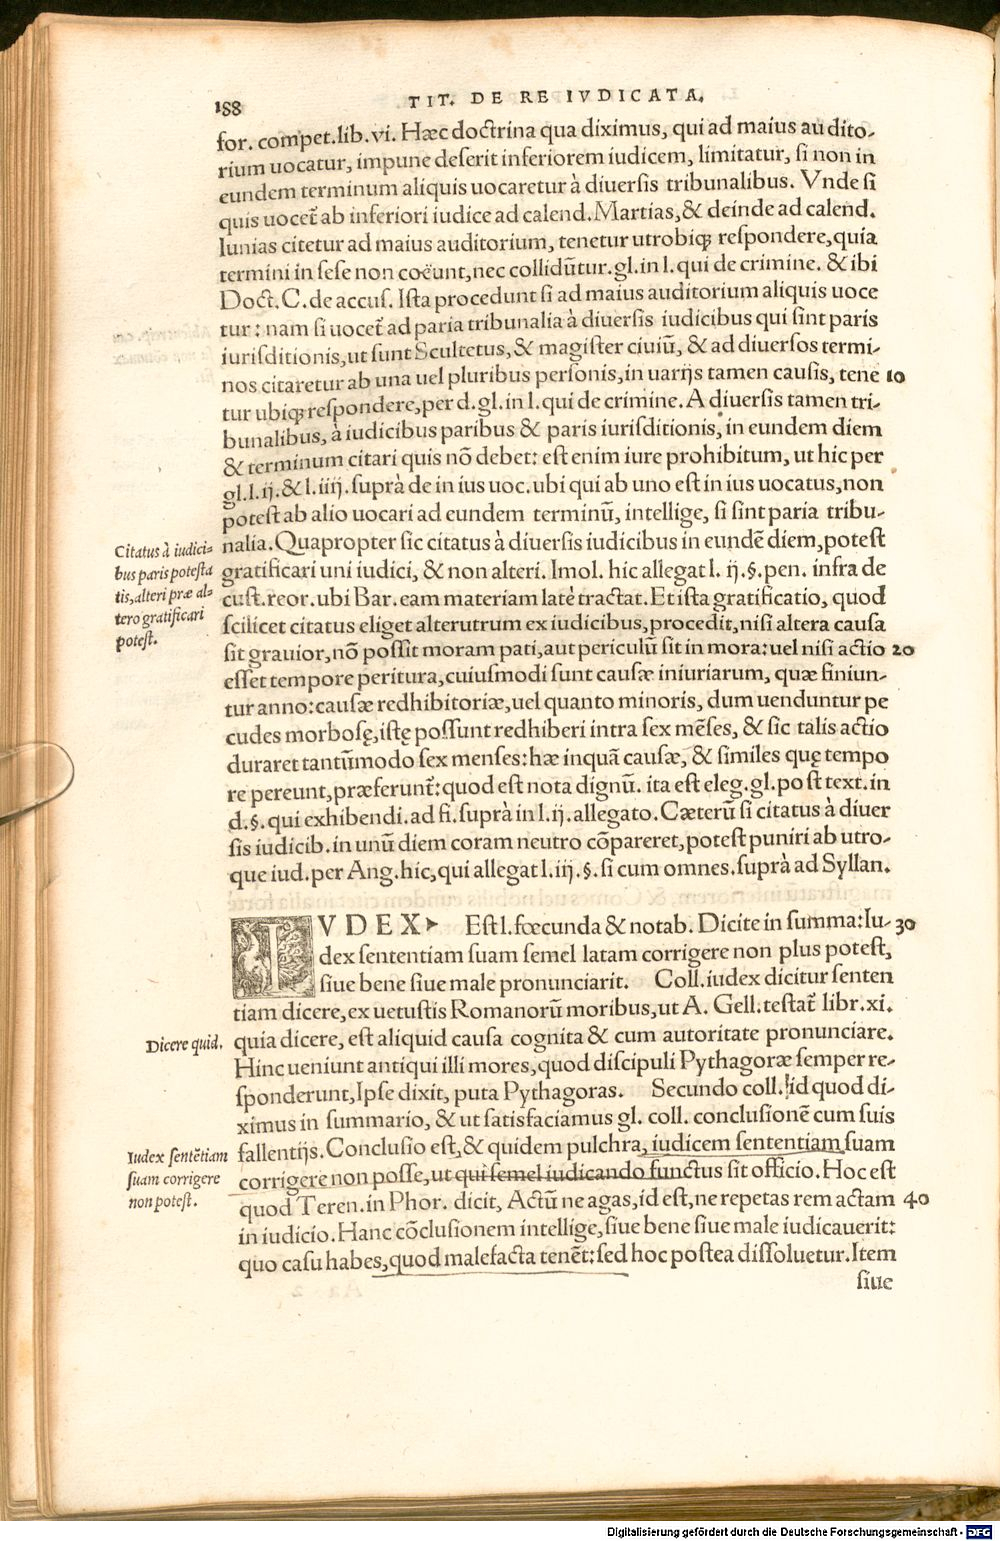 188
TIT. DE RE IVDICATA.
for. compet.lib.vi. Hæc doctrina qua diximus, qui ad maius audito-
rium uocatur, impune deserit inferiorem iudicem, limitatur, si non in
eundem terminum aliquis uocaretur à diuersis tribunalibus. Vnde si
quis uocet̃ ab inferiori iudice ad calend. Martias, & deinde ad calend.
Iunias citetur ad maius auditorium, tenetur utrobiqȝ respondere, quia
termini in sese non coëunt, nec collidũtur. gl. in l. qui de crimine. & ibi
Doct. C. de accus. Ista procedunt si ad maius auditorium aliquis uoce
tur: nam si uocet̃ ad paria tribunalia à diuersis iudicibus qui sint paris
iurisditionis, ut sunt Scultetus, & magister ciuiũ, & ad diuersos termi-
nos citaretur ab una uel pluribus personis, in uarijs tamen causis, tene 10
tur ubiqȝ respondere, per d. gl. in l. qui de crimine. A diuersis tamen tri-
bunalibus, à iudicibus paribus & paris iurisditionis, in eundem diem
& terminum citari quis nõ debet: est enim iure prohibitum, ut hic per
gl. l. ij. & l. iiij. suprà de in ius uoc. ubi qui ab uno est in ius uocatus, non
potest ab alio uocari ad eundem terminũ, intellige, si sint paria tribu-
nalia. Quapropter sic citatus à diuersis iudicibus in eundẽ diem, potest
gratificari uni iudici, & non alteri. Imol. hic allegat l. ij. §. pen. infra de
cust. reor. ubi Bar. eam materiam latè tractat. Et ista gratificatio, quod
scilicet citatus eliget alterutrum ex iudicibus, procedit, nisi altera causa
sit grauior, nõ possit moram pati, aut periculũ sit in mora: uel nisi actio 20
esset tempore peritura, cuiusmodi sunt causæ iniuriarum, quæ finiun-
tur anno: causæ redhibitoriæ, uel quanto minoris, dum uenduntur pe
cudes morbosę, istę possunt redhiberi intra sex mẽses, & sic talis actio
duraret tantũmodo sex menses: hæ inquã causæ, & similes quę tempo
re pereunt, præferunt̃: quod est nota dignũ. ita est eleg. gl. post text. in
d. §. qui exhibendi. ad fi. suprà in l. ij. allegato. Cæterũ si citatus à diuer
sis iudicib. in unũ diem coram neutro cõpareret, potest puniri ab utro-
que iud. per Ang. hic, qui allegat l. iij. §. si cum omnes. suprà ad Syllan.
Citatus à iudici-
bus paris potesta
tis, alteri præ al-
tero gratificari
potest.
IVDEX Est l. fœcunda & notab. Dicite in summa: Iu- 30
dex sententiam suam semel latam corrigere non plus potest,
siue bene siue male pronunciarit. Coll. iudex dicitur senten
tiam dicere, ex uetustis Romanorũ moribus, ut A. Gell. testat̃ libr. xi.
quia dicere, est aliquid causa cognita & cum autoritate pronunciare.
Hinc ueniunt antiqui illi mores, quod discipuli Pythagoræ semper re-
sponderunt, Ipse dixit, puta Pythagoras. Secundo coll. id quod di-
ximus in summario, & ut satisfaciamus gl. coll. conclusionẽ cum suis
fallentijs. Conclusio est, & quidem pulchra, iudicem sententiam suam
corrigere non posse, ut qui semel iudicando functus sit officio. Hoc est
quod Teren. in Phor. dicit, Actũ ne agas, id est, ne repetas rem actam 40
in iudicio. Hanc cõclusionem intellige, siue bene siue male iudicauerit:
quo casu habes, quod malefacta tenẽt: sed hoc postea dissoluetur. Item
siue
Dicere quid.
Iudex sentẽtiam
suam corrigere
non potest.
Digitalisierung gefördert durch die Deutsche Forschungsgemeinschaft - DFG